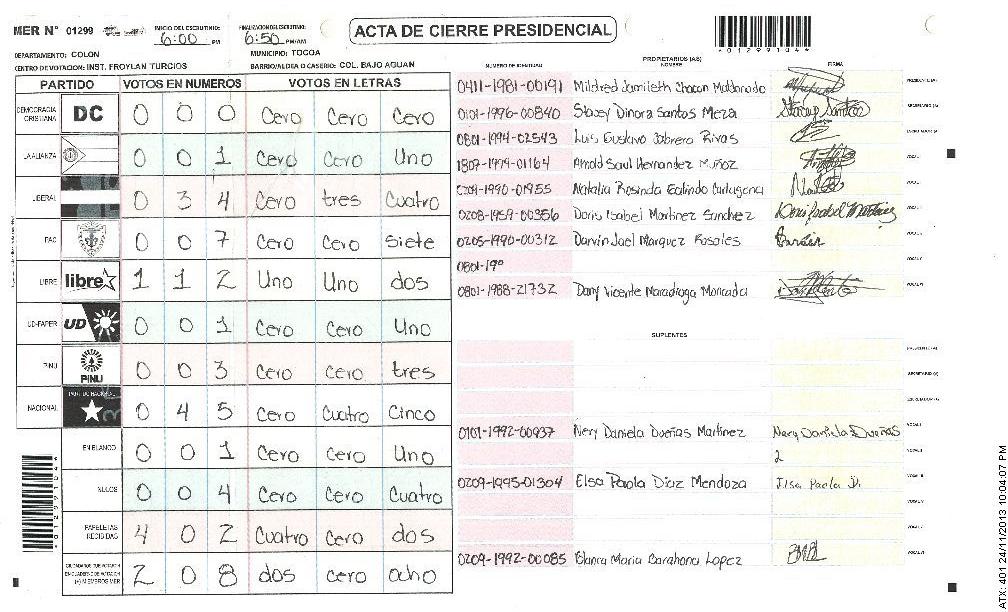 MER N° 01299
INICIO DEL ESCRUTINIO: 6:00 PM
FINALIZACION DEL ESCRUTINIO: 6:50 PM/AM
ACTA DE CIERRE PRESIDENCIAL
DEPARTAMENTO: COLON
MUNICIPIO: TOCOA
CENTRO DE VOTACION: INST. FROYLAN TURCIOS
BARRIO/ALDEA O CASERIO: COL. BAJO AGUAN
PARTIDO VOTOS EN NUMEROS VOTOS EN LETRAS
DEMOCRACIA CRISTIANA DC 0 0 0 Cero Cero Cero
LA ALIANZA 0 0 1 Cero Cero Uno
LIBERAL 0 3 4 Cero tres Cuatro
PAC 0 0 7 Cero Cero Siete
LIBRE libre 1 1 2 Uno Uno dos
UD-FAPER UD 0 0 1 Cero Cero Uno
PINU PINU 0 0 3 Cero Cero tres
NACIONAL PARTIDO NACIONAL 0 4 5 Cero Cuatro Cinco
EN BLANCO 0 0 1 Cero Cero Uno
NULOS 0 0 4 Cero Cero Cuatro
PAPELETAS RECIBIDAS 4 0 2 Cuatro Cero dos
CIUDADANOS QUE VOTARON EN CUADERNO DE VOTACION (+) MIEMBROS MER 2 0 8 dos cero ocho
PROPIETARIOS (AS)
NUMERO DE IDENTIDAD NOMBRE FIRMA
0411-1981-00191 Mildred Jamileth Chacon Maldonado
0101-1996-00840 Stacey Dinora Santos Meza Stacey Santos
0801-1994-02543 Luis Gustavo Rivas
1807-1979-01164 Arnold Saul Hernandez Muñoz
0209-1990-01955 Natalia Rosinda Galindo Cartagena
0208-1959-00356 Doris Isabel Martinez Sanchez Doris Isabel Martinez
0205-1990-00312 Darvin Jael Marquez Rosales
0801-19
0801-1988-21732 Dany Vicente Maradiaga Moncada
SUPLENTES
0101-1992-00937 Nery Daniela Dueñas Martinez Nery Daniela Dueñas
2
0209-1995-01304 Elsa Paola Diaz Mendoza Elsa Paola D.
0209-1992-00085 Blanca Maria Barahona Lopez
ATX: 401 24/11/2013 10:04:07 PM